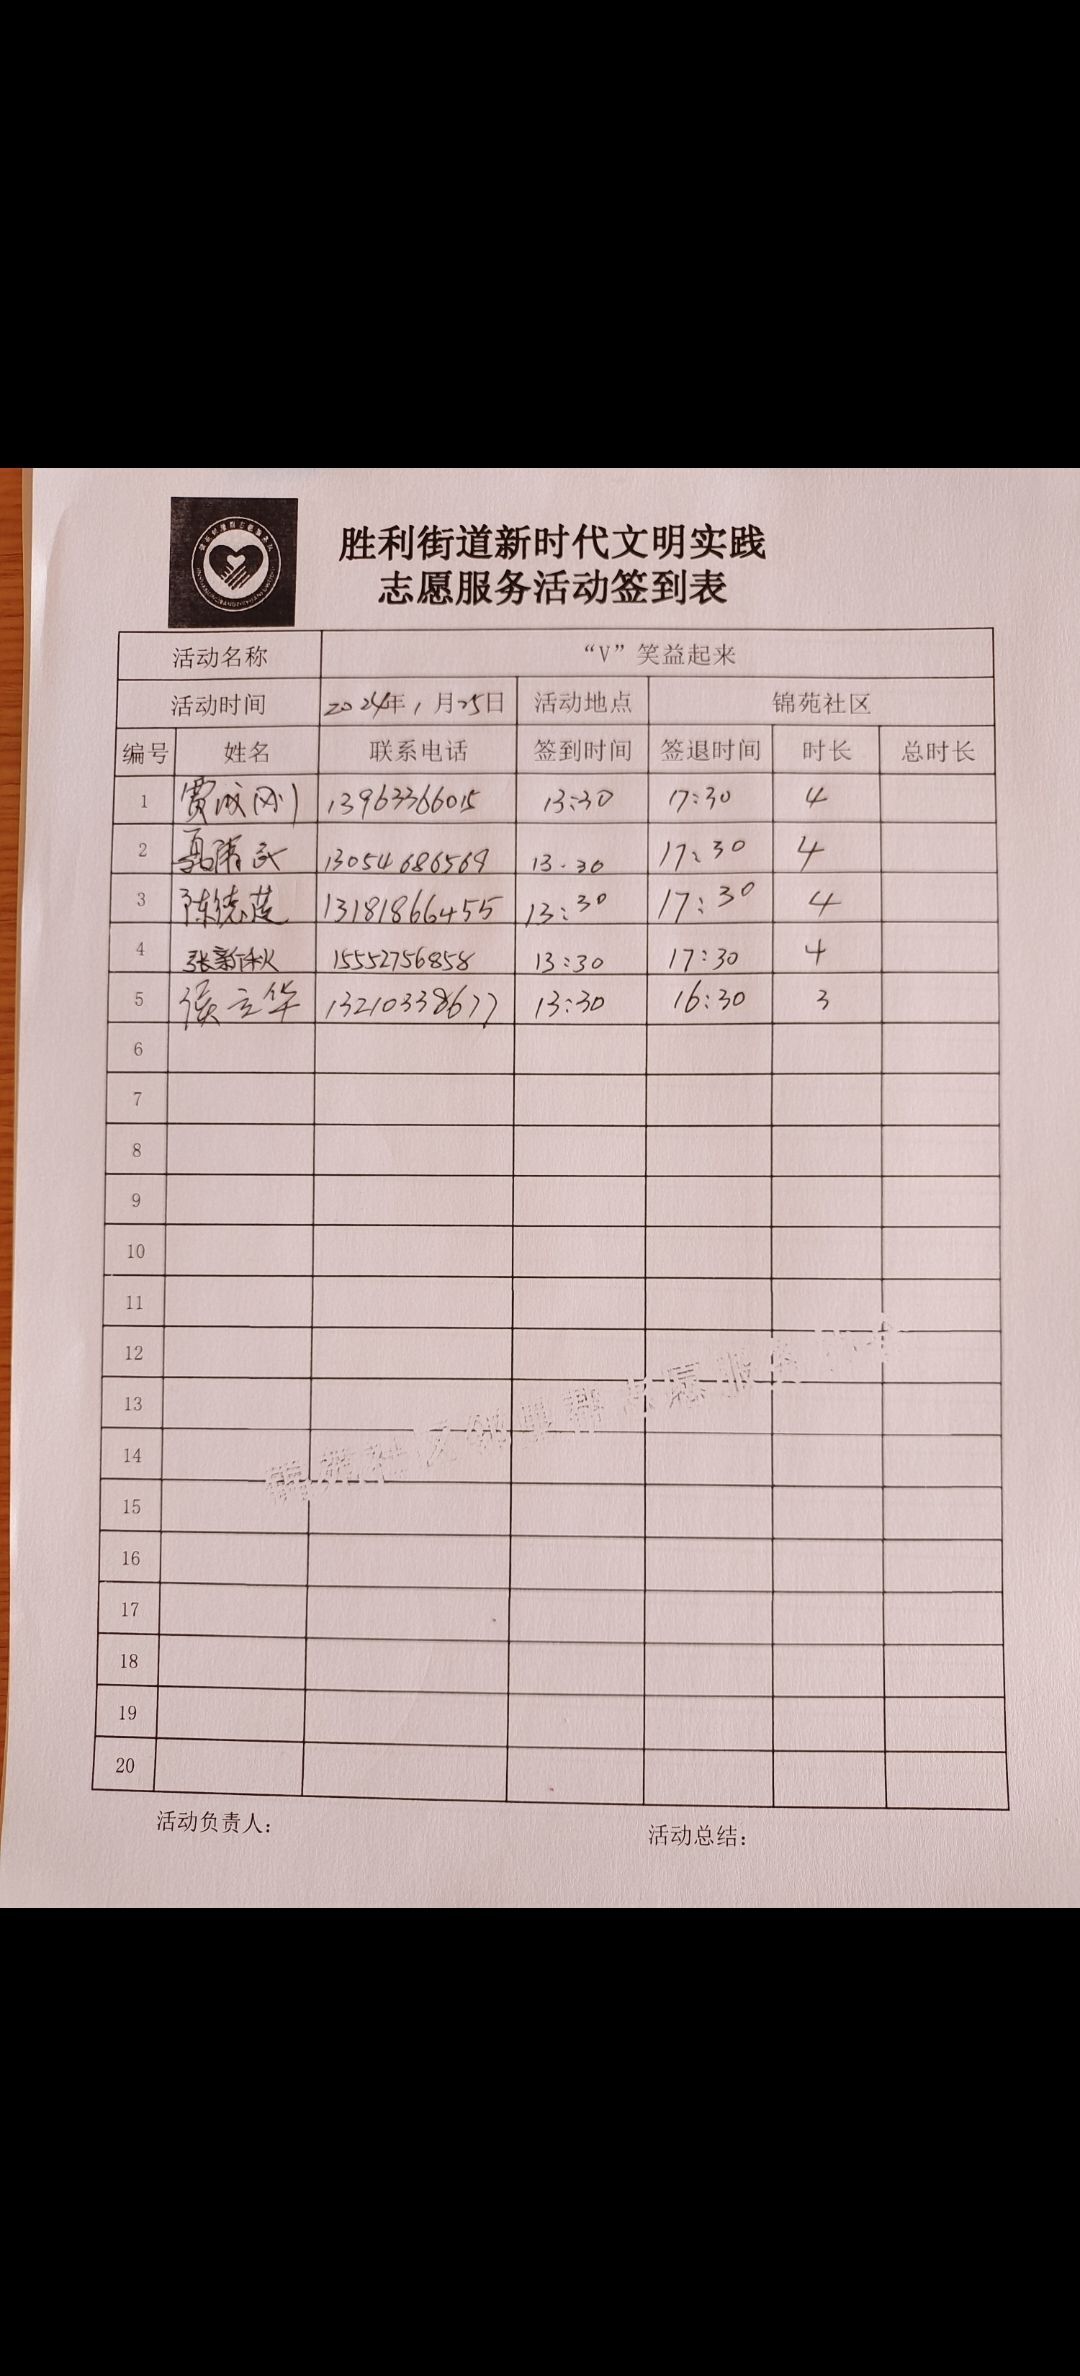 胜利街道新时代文明实践
志愿服务活动签到表
活动名称 “V”笑益起来
活动时间 2024年1月25日 活动地点 锦苑社区
编号 姓名 联系电话 签到时间 签退时间 时长 总时长
1 贾成刚 13963366015 13:30 17:30 4
2 13054686569 13:30 17:30 4
3 陈德莲 13181866455 13:30 17:30 4
4 张新秋 15552756858 13:30 17:30 4
5 侯立华 13210338677 13:30 16:30 3
6
7
8
9
10
11
12
13
14
15
16
17
18
19
20
锦苑社区邻里帮志愿服务
活动负责人:
活动总结: